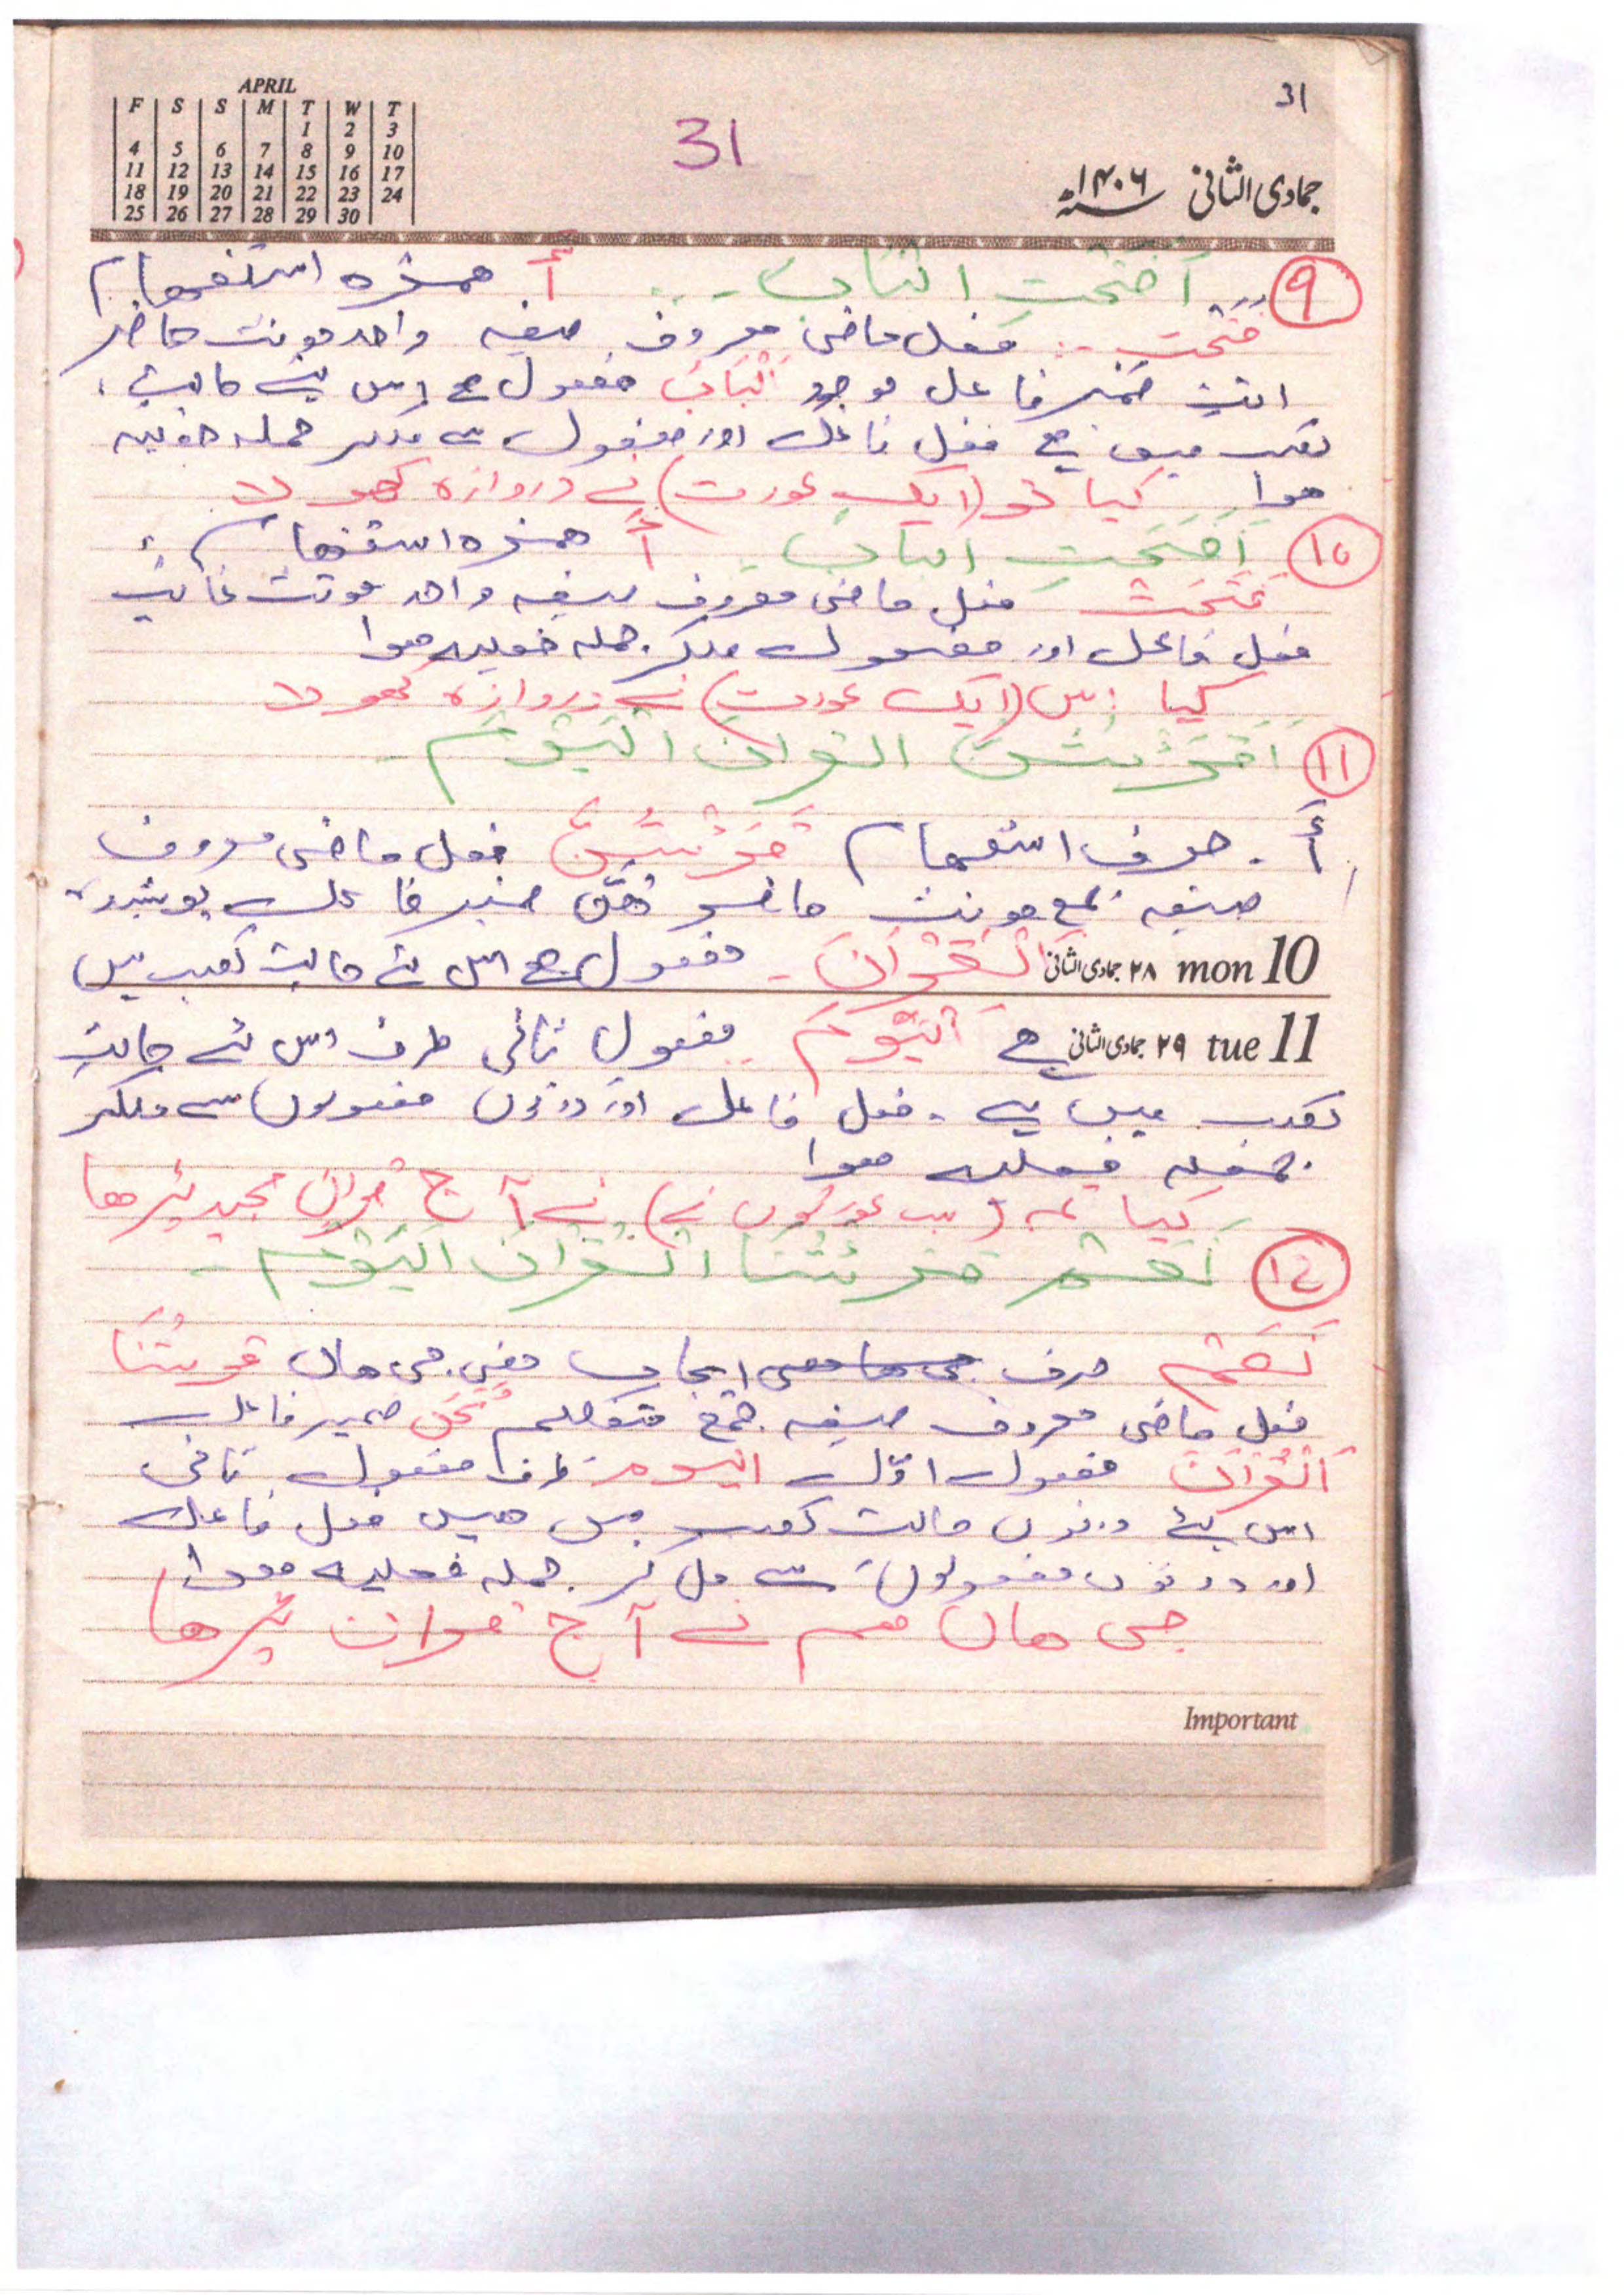 APRIL
F S S M T W T
1 2 3
4 5 6 7 8 9 10
11 12 13 14 15 16 17
18 19 20 21 22 23 24
25 26 27 28 29 30
31
31
جمادی الثانی ۱۴۰۶
۹ أفتحت الباب أ همزہ استفہام
فتحت فعل ماضی معروف صیغہ واحد مونث حاضر
انت ضمیر فاعل موجود الباب مفعول ہے اس لئے حالت
نصب میں ہے فعل فاعل اور مفعول سے ملکر جملہ فعلیہ
ہوا کیا تو (ایک عورت) نے دروازہ کھولا
۱۰ أفتحت الباب أ همزہ استفہام
فتحت فعل ماضی معروف صیغہ واحد مونث غائب
فعل فاعل اور مفعول ملکر جملہ فعلیہ ہوا
کیا اس (ایک عورت) نے دروازہ کھولا
۱۱ القرآن اليوم
أ حرف استفہام فعل ماضی معروف
صیغہ جمع مونث حاضر ضمیر فاعل پوشیدہ
mon 10 ۲۸ جمادی الثانی القرآن مفعول ہے اس لئے حالت نصب میں
tue 11 ۲۹ جمادی الثانی ہے اليوم مفعول ثانی ظرف اس لئے حالت
نصب میں ہے۔ فعل فاعل اور دونوں مفعولوں سے ملکر
جملہ فعلیہ ہوا
کیا تم (سب عورتوں نے) نے آج قرآن مجید پڑھا
۱۲ نعم قرئنا القرآن اليوم
نعم حرف ایجاب معنی جی ہاں قرئنا
فعل ماضی معروف صیغہ جمع متکلم نحن ضمیر فاعل
القرآن مفعول اول اليوم ظرف مفعول ثانی
اس لئے دونوں حالت نصب میں ہیں فعل فاعل
اور دونوں مفعولوں سے مل کر جملہ فعلیہ ہوا
جی ہاں ہم نے آج قرآن پڑھا
Important